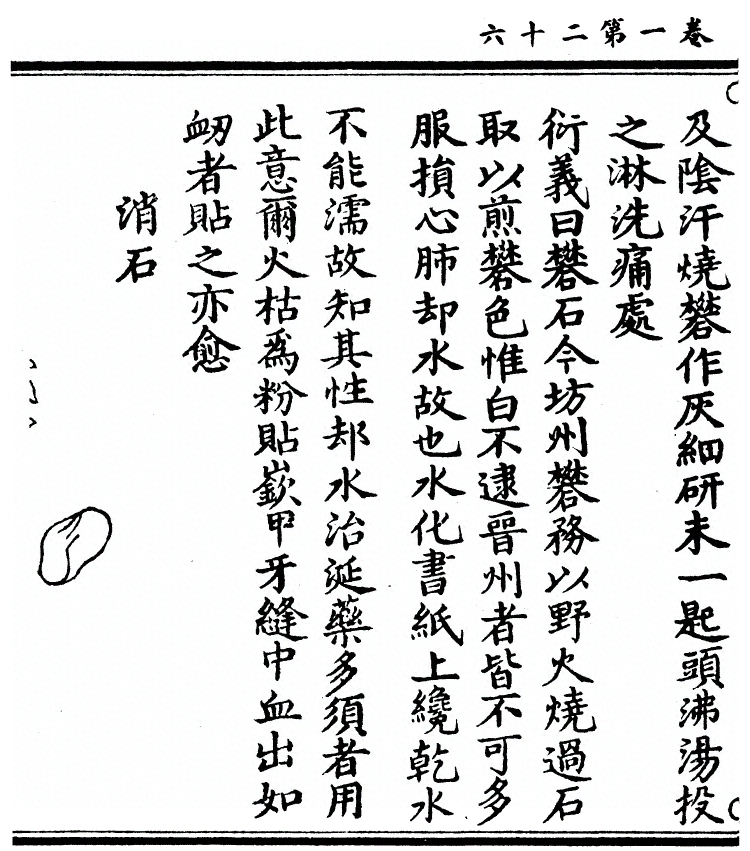 卷一第二十六
及陰汗燒礬作灰細研末一匙頭沸湯投
之淋洗痛處
衍義曰礬石今坊州礬務以野火燒過石
取以煎礬色惟白不逮晉州者皆不可多
服損心肺却水故也水化書紙上纔乾水
不能濡故知其性却水治涎藥多須者用
此意爾火枯爲粉貼嵌甲牙縫中血出如
衂者貼之亦愈
消石